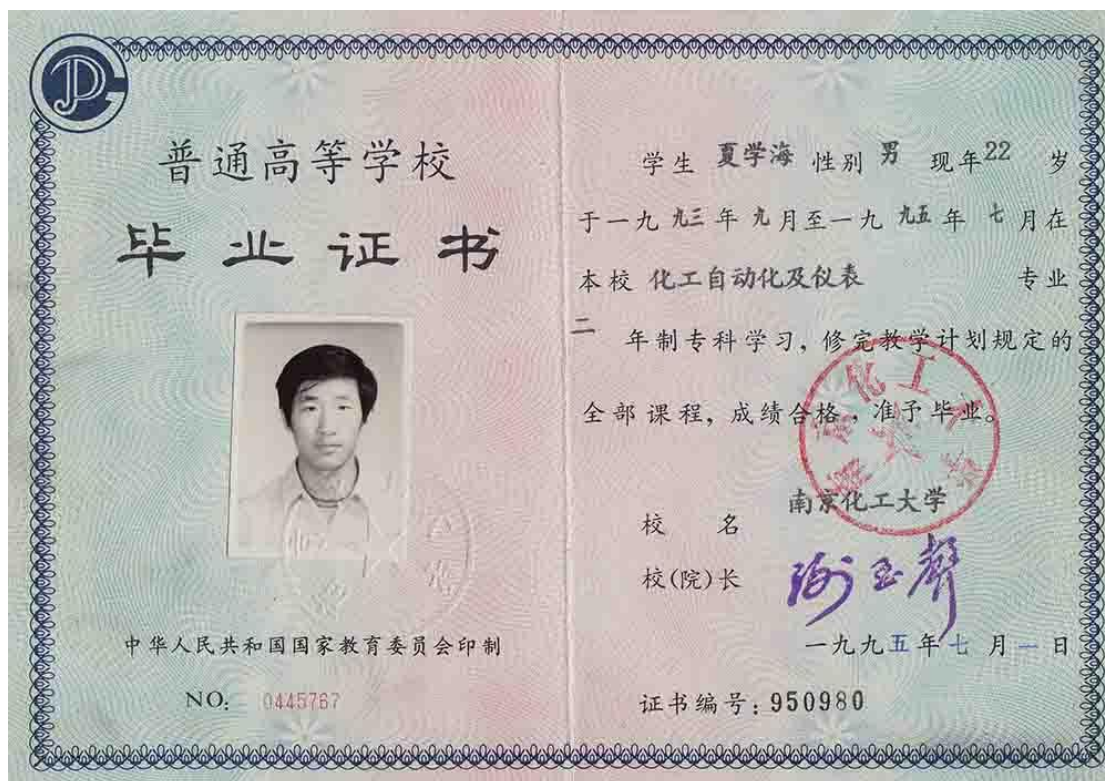 普通高等学校
毕业证书
中华人民共和国国家教育委员会印制
NO: 0445767
学生 夏学海 性别 男 现年22 岁
于一九九三年九月至一九九五年七月在
本校 化工自动化及仪表 专业
二年制专科学习,修完教学计划规定的
全部课程,成绩合格,准予毕业。
校名 南京化工大学
校(院)长
一九九五年七月一日
证书编号:950980